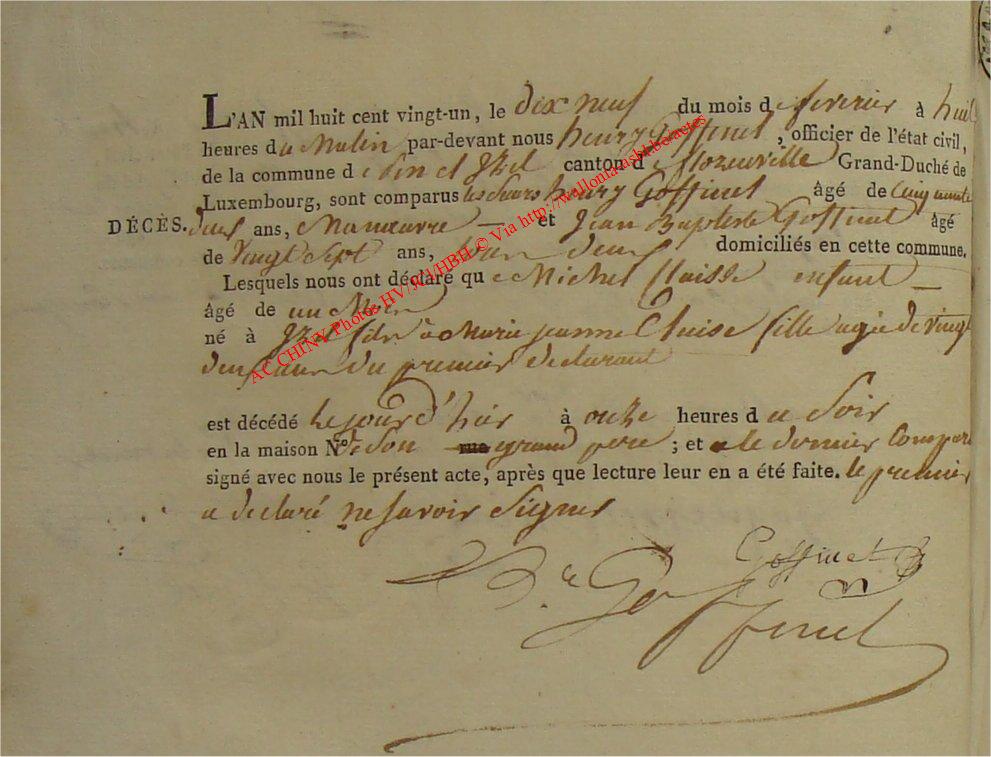 L'AN mil huit cent vingt-un, le dix neuf du mois de fevrier à huit
heures du Matin par-devant nous henry Goffinet, officier de l'état civil,
de la commune de Pin et Izel canton de florenville Grand-Duché de
Luxembourg, sont comparus henry Goffinet âgé de Cinquante
DÉCÈS. deux ans, Manœuvre et Jean Baptiste Goffinet âgé
de Vingt Sept ans, domiciliés en cette commune.
Lesquels nous ont déclaré que Michel Claisse enfant
âgé de un Mois
né à Izel fils à Marie jeanne Claise fille agée de vingt
deux ans du premier declarant
est décédé le jour d'hier à onze heures du Soir
en la maison de Son grand pere ; et le dernier Compar
signé avec nous le présent acte, après que lecture leur en a été faite. le premier
a declaré ne savoir Signer
Goffinet
Goffinet
AC CHINY Photos HV/JCJ/HBH © Via http://wallonia-asbl.be/actes